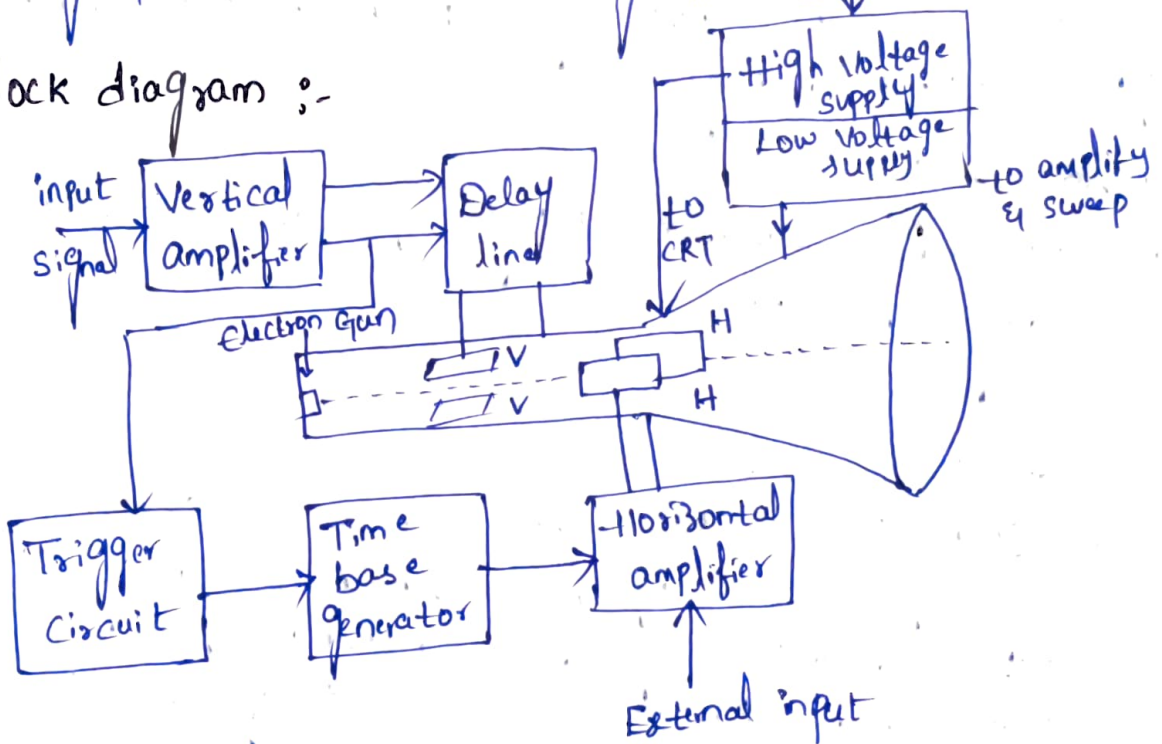 ock diagram :-
input
signal
Vertical
amplifier
Delay
line
High Voltage
supply
Low Voltage
supply
to amplify
& sweep
to
CRT
Electron Gun
V
V
H
H
Trigger
Circuit
Time
base
generator
Horizontal
amplifier
External input